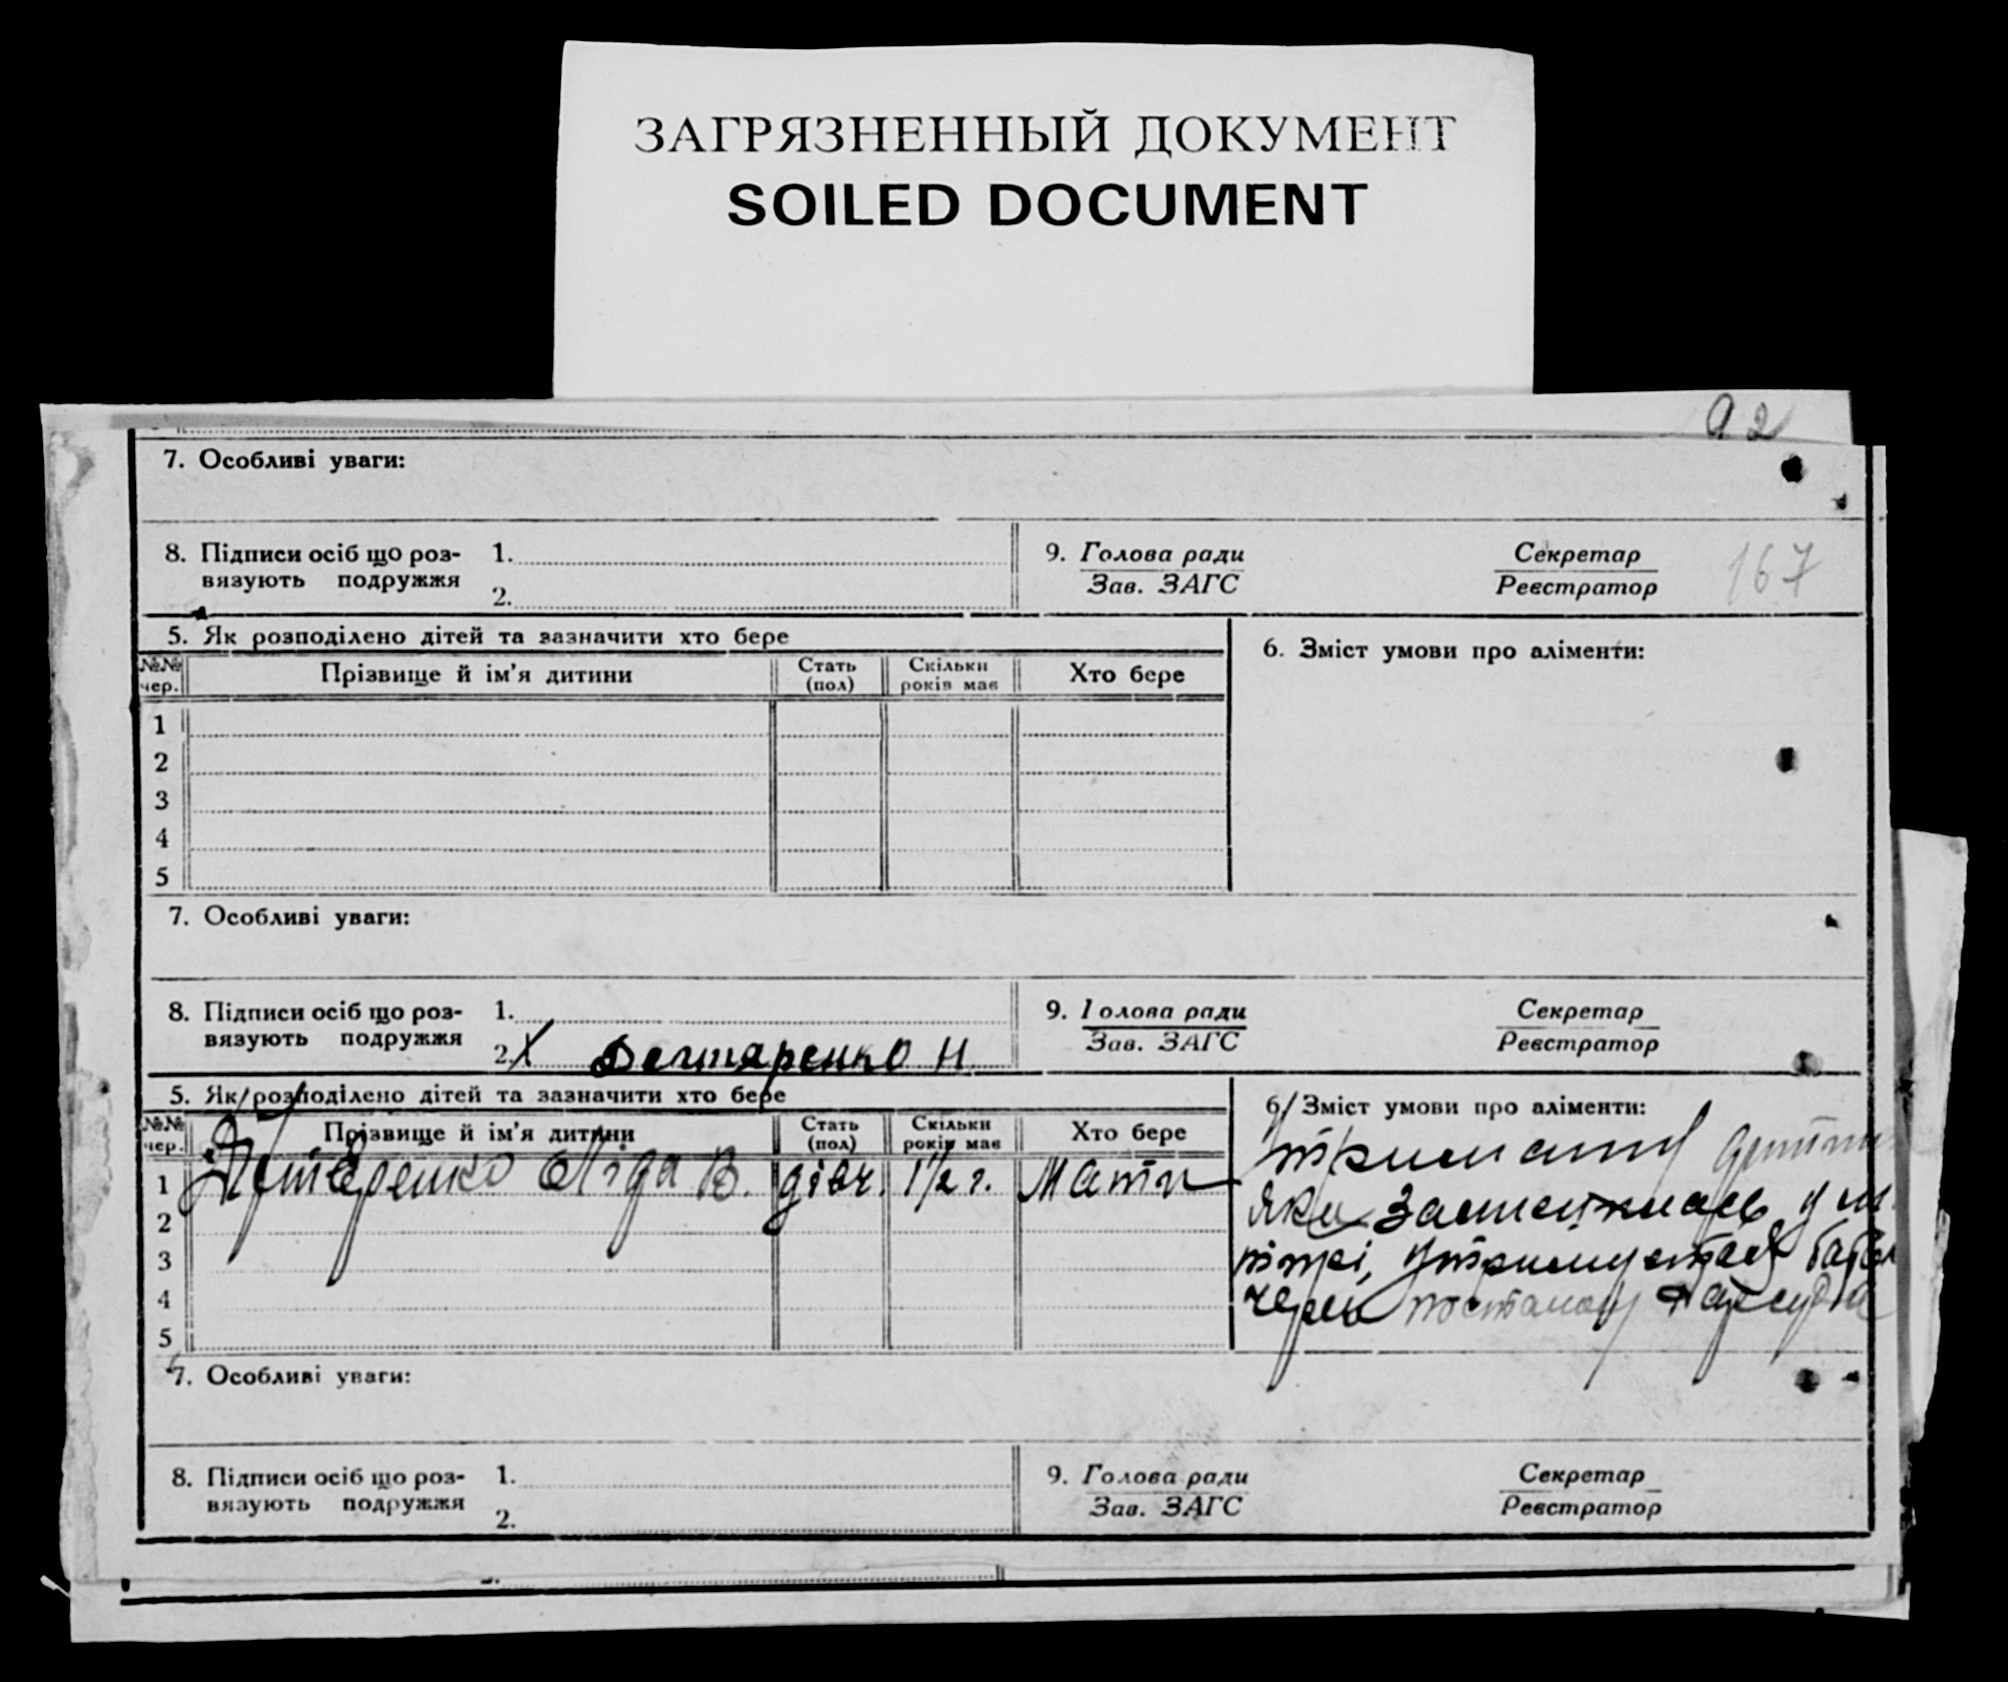 ЗАГРЯЗНЕННЫЙ ДОКУМЕНТ
SOILED DOCUMENT
92
7. Особливі уваги:
8. Підписи осіб що роз-
вязують подружжя
1.
2.
9. Голова ради
Зав. ЗАГС
Секретар
Реєстратор
167
5. Як розподілено дітей та зазначити хто бере
№№ чер.
Прізвище й ім'я дитини
Стать (пол)
Скільки років має
Хто бере
6. Зміст умови про аліменти:
1
2
3
4
5
7. Особливі уваги:
8. Підписи осіб що роз-
вязують подружжя
1.
2. X Дегтяренко Н.
9. Голова ради
Зав. ЗАГС
Секретар
Реєстратор
5. Як розподілено дітей та зазначити хто бере
№№ чер.
Прізвище й ім'я дитини
Стать (пол)
Скільки років має
Хто бере
6. Зміст умови про аліменти:
1 Дегтяренко Ліда В. дівч. 1½ г. Мати
2
3
4
5
яка
через постанову
7. Особливі уваги:
8. Підписи осіб що роз-
вязують подружжя
1.
2.
9. Голова ради
Зав. ЗАГС
Секретар
Реєстратор